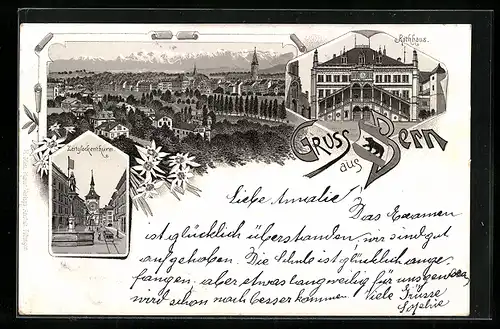 Rathhaus.
Gruss
aus
Bern
Zeitglockenthurm.
Liebe Amalie!
Das Examen
ist glücklich überstanden, wir sind gut
aufgehoben. Die Schule ist glücklich ange-
fangen aber etwas langweilig für uns
wird schon noch besser kommen. Viele Grüsse
Sophie